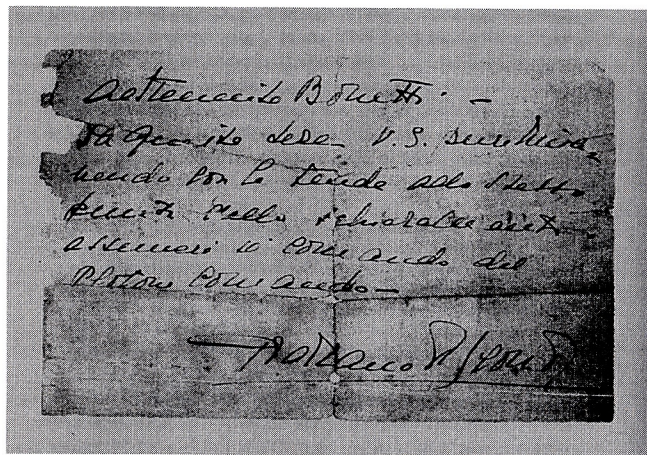 Bonetti. -
Da questa sera V.S. pur rima-
nendo con le tende allo stesso
punto dello schieramento
assumerà il comando del
Plotone Comando -